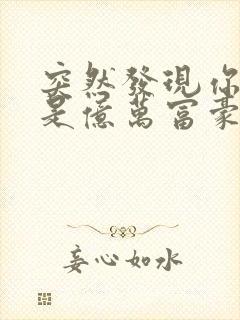 突然發現你
是億萬富豪
妄心如水